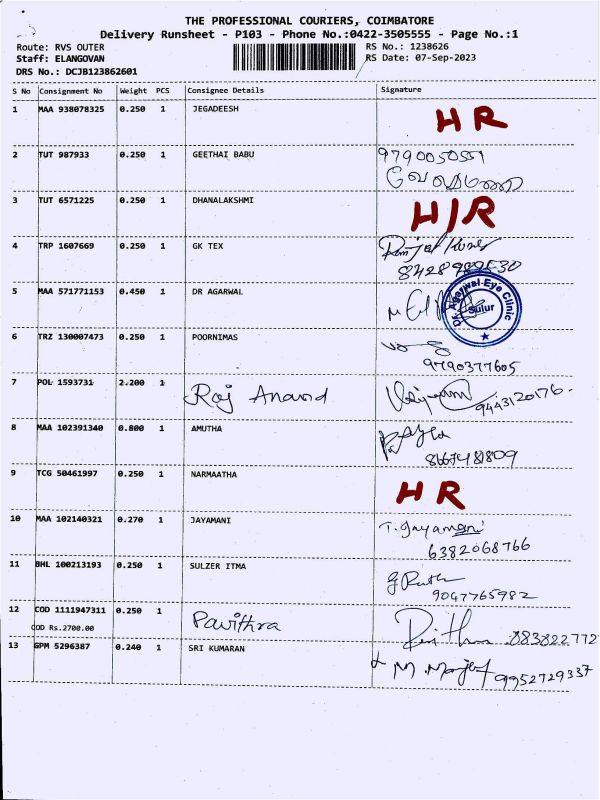 THE PROFESSIONAL COURIERS, COIMBATORE
Delivery Runsheet - P103 - Phone No.:0422-3505555 - Page No.:1
Route: RVS OUTER RS No.: 1238626
Staff: ELANGOVAN RS Date: 07-Sep-2023
DRS No.: DCJB123862601
S No Consignment No Weight PCS Consignee Details Signature
1 MAA 938078325 0.250 1 JEGADEESH HR
2 TUT 987933 0.250 1 GEETHAI BABU 9790050551
3 TUT 6571225 0.250 1 DHANALAKSHMI H/R
4 TRP 1607669 0.250 1 GK TEX
5 MAA 571771153 0.450 1 DR AGARWAL Dr. Agarwal Eye Clinic Sulur
6 TRZ 130007473 0.250 1 POORNIMAS
9790377605
7 POL 1593731 2.200 1 Raj Anand 9443120176-
8 MAA 102391340 0.800 1 AMUTHA
9 TCG 50461997 0.250 1 NARMAATHA HR
10 MAA 102140321 0.270 1 JAYAMANI T. Jayamani
6382068766
11 BHL 100213193 0.250 1 SULZER ITMA
9047765982
12 COD 1111947311 0.250 1 Pavithra
COD Rs.2700.00
13 GPM 5296387 0.240 1 SRI KUMARAN 9952729337